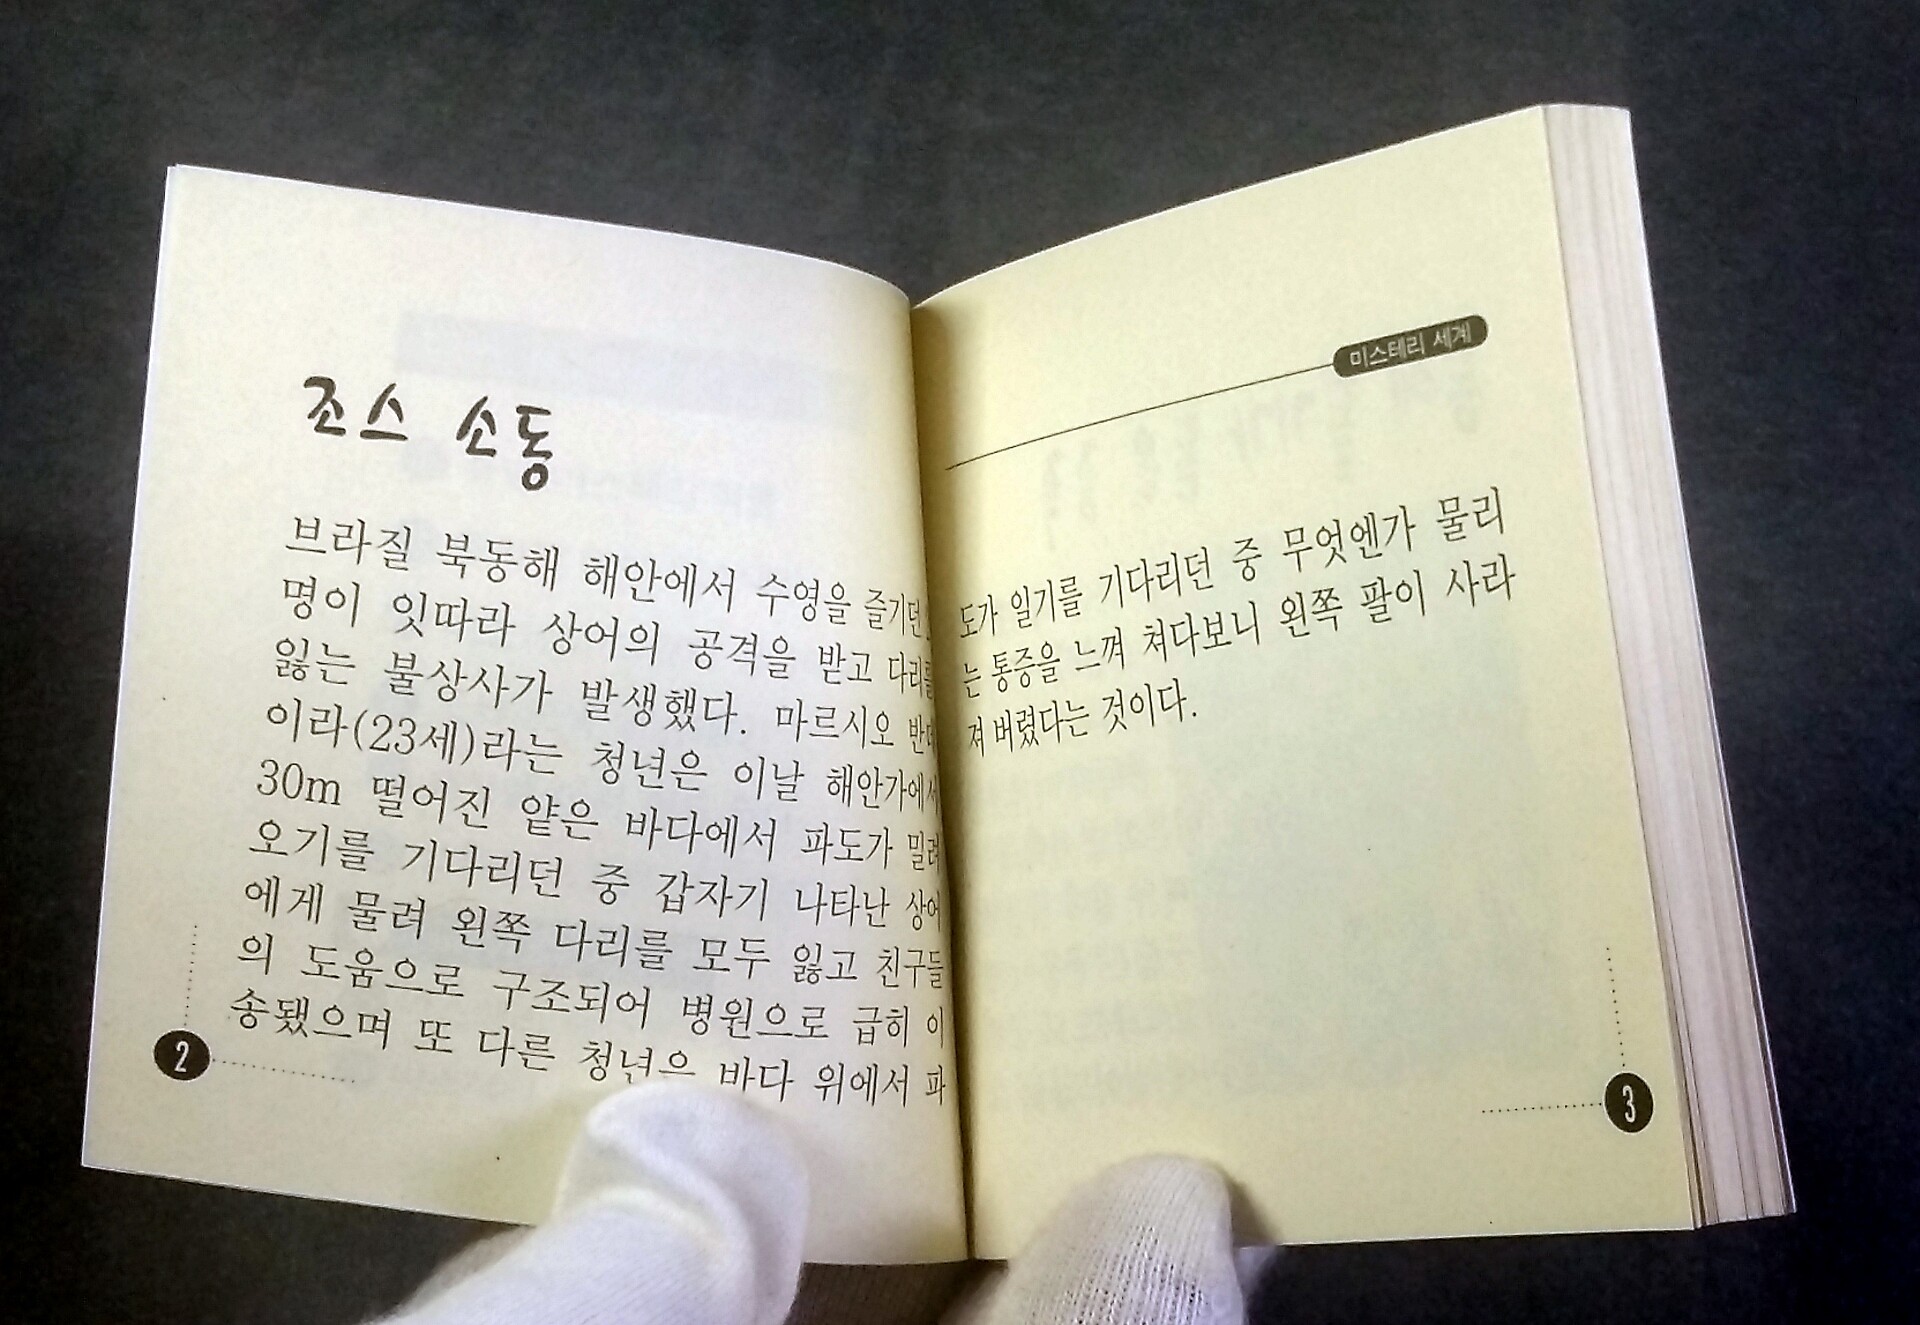 조스 소동
브라질 북동해 해안에서 수영을 즐기던
명이 잇따라 상어의 공격을 받고 다리를
잃는 불상사가 발생했다. 마르시오 반데
이라(23세)라는 청년은 이날 해안가에서
30m 떨어진 얕은 바다에서 파도가 밀려
오기를 기다리던 중 갑자기 나타난 상어
에게 물려 왼쪽 다리를 모두 잃고 친구들
의 도움으로 구조되어 병원으로 급히 이
송됐으며 또 다른 청년은 바다 위에서 파
2
미스테리 세계
도가 일기를 기다리던 중 무엇엔가 물리
는 통증을 느껴 쳐다보니 왼쪽 팔이 사라
져 버렸다는 것이다.
3